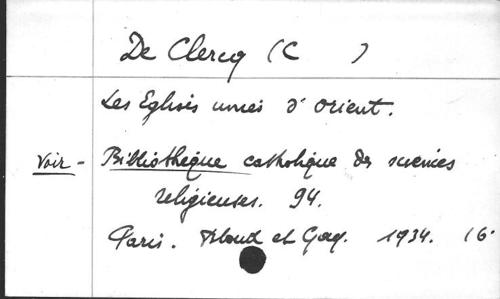 De Clercq (C )
Les Eglises unies d'Orient.
Voir - Bibliothèque catholique des sciences
religieuses. 94.
Paris. Bloud et Gay. 1934. 16°